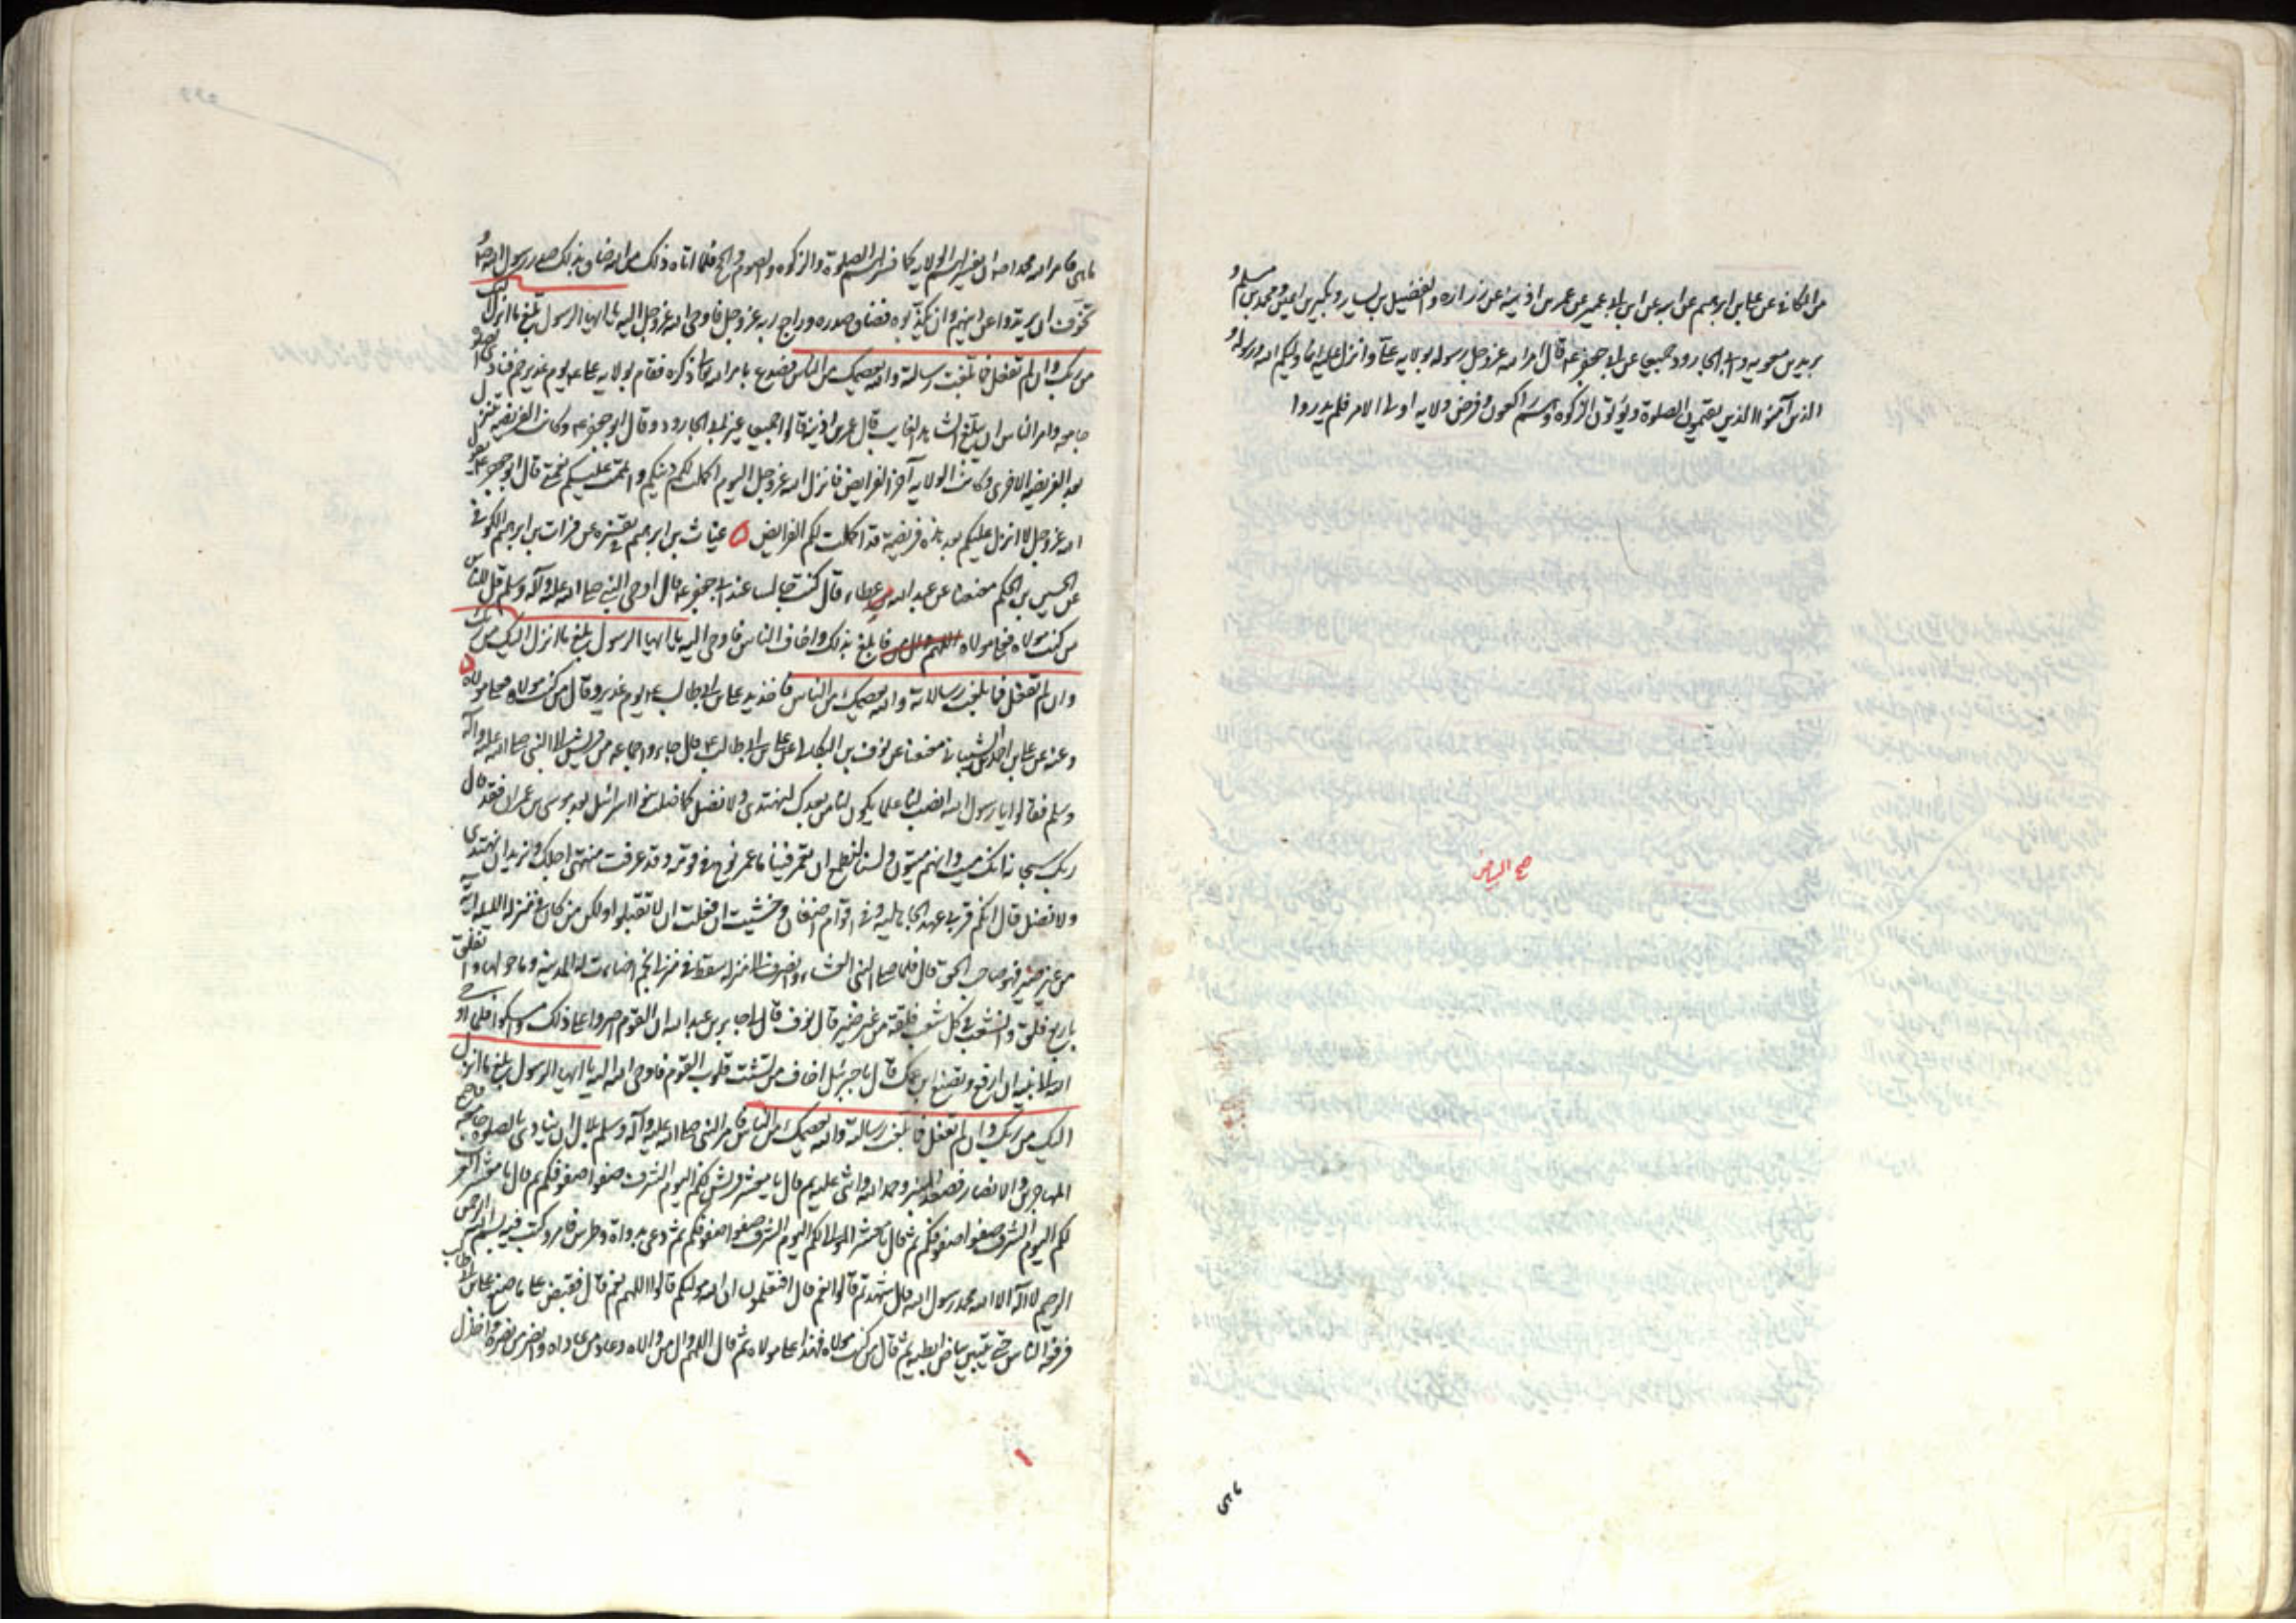 من الكافي عن علي بن ابرهيم عن ابيه عن ابن ابي عمير عن عمر بن اذينة عن زرارة والفضيل بن يسار وبكير بن اعين ومحمد بن مسلم و
بريد بن معوية وابي الجارود جميعا عن ابي جعفر ع قال امر الله عز وجل رسوله بولاية علي وانزل عليه انما وليكم الله ورسوله و
الذين آمنوا الذين يقيمون الصلوة ويؤتون الزكوة وهم راكعون وفرض ولاية اولي الامر فلم يدروا
صح البياض
ما هي
ما هي فامر الله محمدا ص ان يفسر لهم الولاية كما فسر لهم الصلوة والزكوة والصوم والحج فلما اتاه ذلك من الله ضاق بذلك صدر رسول الله ص و
تخوف ان يرتدوا عن دينهم وان يكذبوه فضاق صدره وراجع ربه عز وجل فاوحى الله عز وجل اليه يا ايها الرسول بلغ ما انزل اليك
من ربك وان لم تفعل فما بلغت رسالته والله يعصمك من الناس فصدع بامر الله تعالى ذكره فقام بولاية علي ع يوم غدير خم فنادى الصلوة
جامعة وامر الناس ان يبلغ الشاهد الغايب قال عمر بن اذينة قالوا جميعا غير ابي الجارود وقال ابو جعفر ع وكانت الفريضة تنزل
بعد الفريضة الاخرى وكانت الولاية آخر الفرايض فانزل الله عز وجل اليوم اكملت لكم دينكم واتممت عليكم نعمتي قال ابو جعفر ع يقول
الله عز وجل لا انزل عليكم بعد هذه فريضة قد اكملت لكم الفرايض ٥ فرات بن ابرهيم الكوفي
عن الحسين بن الحكم معنعنا عن عبد الله بن عطاء قال كنت جالسا عند ابي جعفر ع قال اوحى النبي صلى الله عليه وآله وسلم قل للناس
من كنت مولاه فعلي مولاه فابلغ بذلك وخاف الناس فاوحى اليه يا ايها الرسول بلغ ما انزل اليك من ربك
وان لم تفعل فما بلغت رسالاته والله يعصمك من الناس فاخذ بيد علي بن ابي طالب ع يوم غدير وقال من كنت مولاه فعلي مولاه ٥
وعنه عن علي بن احمد الشيباني معنعنا عن نوف البكالي عن علي بن ابي طالب ع قال جاءوا جماعة من قريش الى النبي صلى الله عليه وآله
وسلم فقالوا يا رسول الله انصب لنا علما يكون لنا من بعدك لنهتدي ولا نضل كما ضلت بنوا اسرائيل بعد موسى بن عمران فقد قال
ربك سبحانه انك ميت وانهم ميتون ولسنا نطمع ان تعمر فينا ما عمر نوح في قومه وقد عرفت منتهى اجلك ونريد ان نهتدي
ولا نضل قال انكم قريب عهد الجاهلية وفي اقوام اضغان وخشيت ان فعلت ان لا تقبلوا ولكن من كان في منزله الليلة آية
من غير ضير فهو صاحب الحق قال فلما صلى النبي العشاء وانصرف الى منزله سقط في منزلي نجم اضاءت له المدينة وما حولها وانفلق
باربع فلق وانشعب في كل شعب فلقة من غير ضير قال نوف قال جابر بن عبد الله ان القوم اصروا على ذلك وامسكوا فلما اوحى
الله الى نبيه ان ارفع بضبع ابن عمك قال يا جبرئيل اخاف من تشتت قلوب القوم فاوحى الله اليه يا ايها الرسول بلغ ما انزل
اليك من ربك وان لم تفعل فما بلغت رسالته والله يعصمك من الناس فامر النبي صلى الله عليه وآله وسلم بلالا ان ينادي بالصلوة جامعة فاجتمع
المهاجرين والانصار فصعد المنبر وحمد الله واثنى عليه ثم قال يا معشر قريش لكم اليوم الشرف صفوا صفوفكم ثم قال يا معشر العرب
لكم اليوم الشرف صفوا صفوفكم ثم قال يا معشر الموالي لكم اليوم الشرف صفوا صفوفكم ثم دعى بدواة وطرس فامر وكتب فيه بسم الله الرحمن
الرحيم لا اله الا الله محمد رسول الله قال شهدتم قالوا نعم قال افتعلمون ان الله مولاكم قالوا اللهم نعم قال فقبض على ضبع علي بن ابي طالب
فرفعه للناس حتى تبين بياض ابطيه ثم قال من كنت مولاه فهذا علي مولاه ثم قال اللهم وال من والاه وعاد من عاداه وانصر من نصره واخذل